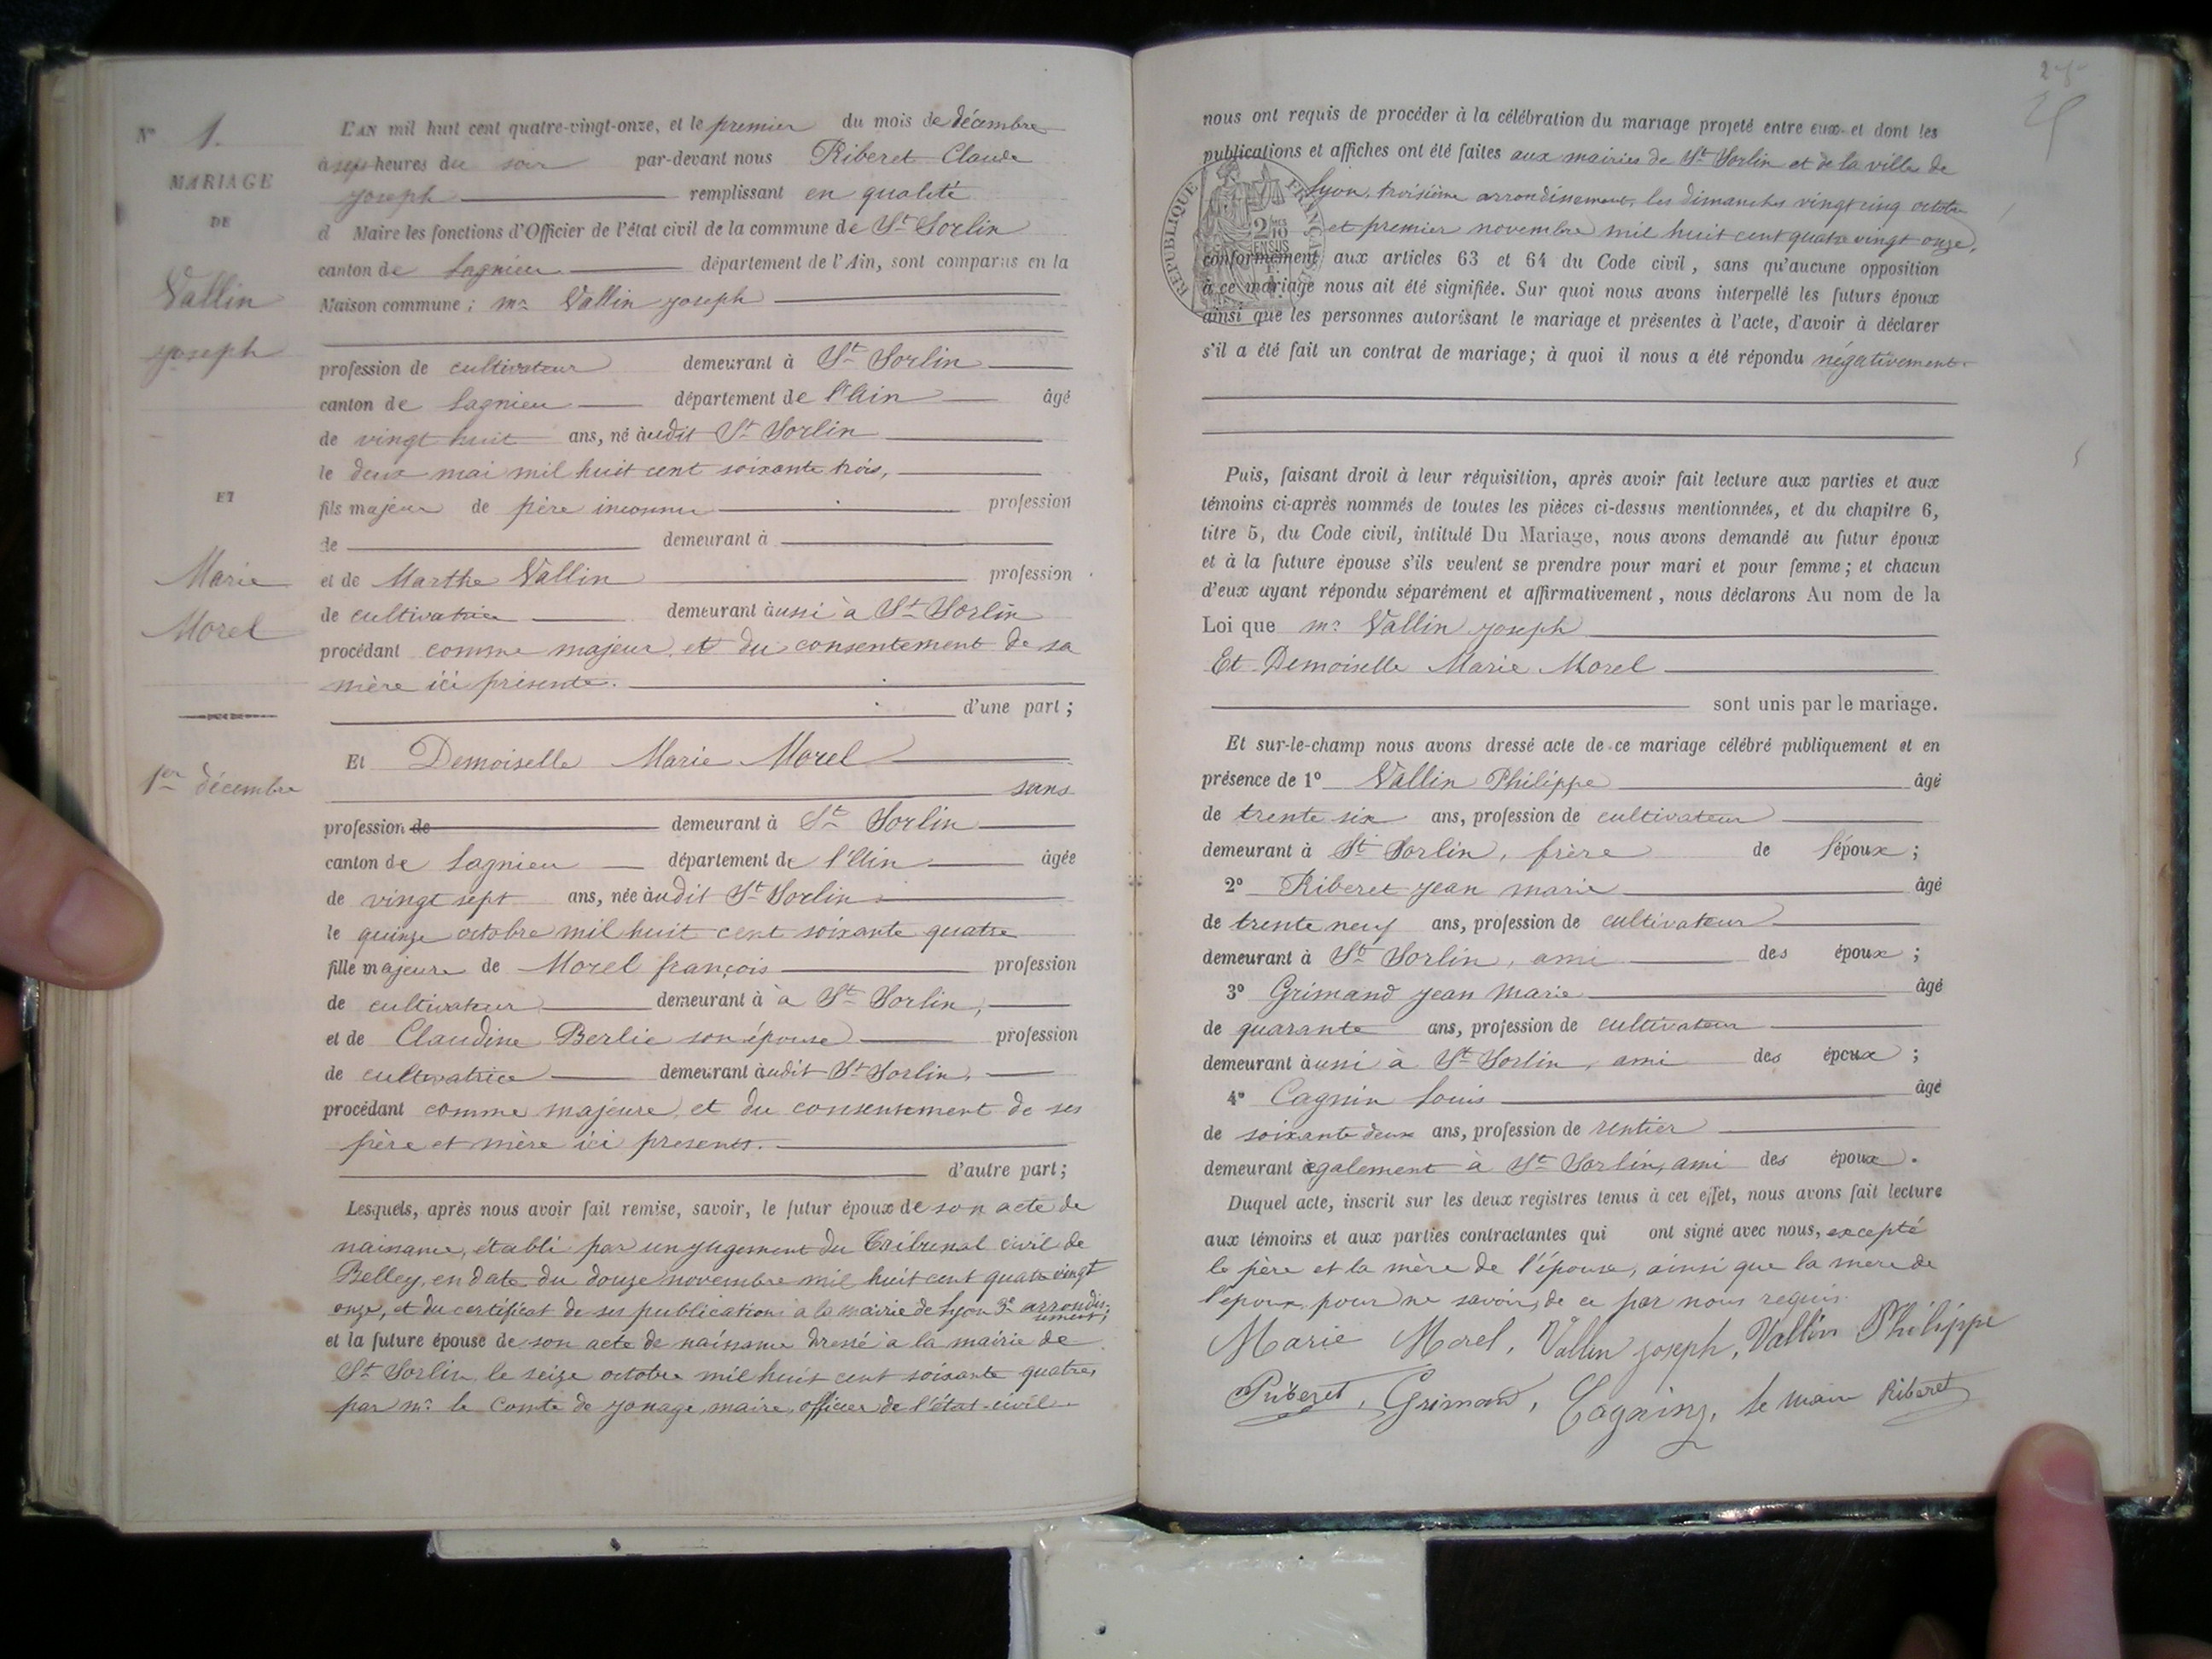 N° 1.
MARIAGE
DE
Vallin
Joseph
ET
Marie
Morel
1er décembre
L'AN mil huit cent quatre-vingt-onze, et le premier du mois de décembre
à sept heures du soir par-devant nous Riberet Claude
Joseph remplissant en qualité
d Maire les fonctions d'Officier de l'état civil de la commune de St Sorlin
canton de Lagnieu département de l'Ain, sont comparus en la
Maison commune : mr Vallin Joseph
profession de cultivateur demeurant à St Sorlin
canton de Lagnieu département de l'Ain âgé
de vingt huit ans, né àudit St Sorlin
le deux mai mil huit cent soixante trois,
fils majeur de père inconnu profession
de demeurant à
et de Marthe Vallin profession
de cultivatrice demeurant àussi à St Sorlin
procédant comme majeur et du consentement de sa
mère ici présente.
d'une part ;
Et Demoiselle Marie Morel
sans
profession de demeurant à St Sorlin
canton de Lagnieu département de l'Ain âgée
de vingt sept ans, née àudit St Sorlin
le quinze octobre mil huit cent soixante quatre
fille majeure de Morel françois profession
de cultivateur demeurant à à St Sorlin,
et de Claudine Berlie son épouse profession
de cultivatrice demeurant àudit St Sorlin,
procédant comme majeure, et du consentement de ses
père et mère ici présents.
d'autre part ;
Lesquels, après nous avoir fait remise, savoir, le futur époux de son acte de
naissance, établi par un jugement du Tribunal civil de
Belley, en date du douze novembre mil huit cent quatre vingt
onze, et du certificat de ses publications à la mairie de Lyon 3e arrondis-
sement;
et la future épouse de son acte de naissance dressé à la mairie de
St Sorlin, le seize octobre mil huit cent soixante quatre,
par mr le Comte de Jonage, maire, officier de l'état-civil
25
nous ont requis de procéder à la célébration du mariage projeté entre eux et dont les
publications et affiches ont été faites aux mairies de St Sorlin et de la ville de
Lyon, troisième arrondissement, les dimanches vingt cinq octobre
et premier novembre mil huit cent quatre vingt onze,
RÉPUBLIQUE FRANÇAISE
2/10 EN SUS
conformément aux articles 63 et 64 du Code civil, sans qu'aucune opposition
à ce mariage nous ait été signifiée. Sur quoi nous avons interpellé les futurs époux
ainsi que les personnes autorisant le mariage et présentes à l'acte, d'avoir à déclarer
s'il a été fait un contrat de mariage; à quoi il nous a été répondu négativement.
Puis, faisant droit à leur réquisition, après avoir fait lecture aux parties et aux
témoins ci-après nommés de toutes les pièces ci-dessus mentionnées, et du chapitre 6,
titre 5, du Code civil, intitulé Du Mariage, nous avons demandé au futur époux
et à la future épouse s'ils veulent se prendre pour mari et pour femme; et chacun
d'eux ayant répondu séparément et affirmativement, nous déclarons Au nom de la
Loi que mr Vallin Joseph
Et Demoiselle Marie Morel
sont unis par le mariage.
Et sur-le-champ nous avons dressé acte de ce mariage célébré publiquement et en
présence de 1° Vallin Philippe âgé
de trente six ans, profession de cultivateur
demeurant à St Sorlin, frère de l'époux ;
2° Riberet Jean marie âgé
de trente neuf ans, profession de cultivateur
demeurant à St Sorlin, ami des époux ;
3° Grimand Jean Marie âgé
de quarante ans, profession de cultivateur
demeurant àussi à St Sorlin, ami des époux ;
4° Cagnin Louis âgé
de soixante deux ans, profession de rentier
demeurant également à St Sorlin, ami des époux.
Duquel acte, inscrit sur les deux registres tenus à cet effet, nous avons fait lecture
aux témoins et aux parties contractantes qui ont signé avec nous, excepté
le père et la mère de l'épouse, ainsi que la mère de
l'époux pour ne savoir, de ce par nous requis.
Marie Morel, Vallin Joseph, Vallin Philippe
Riberet, Grimand, Cagnin, Le maire Riberet